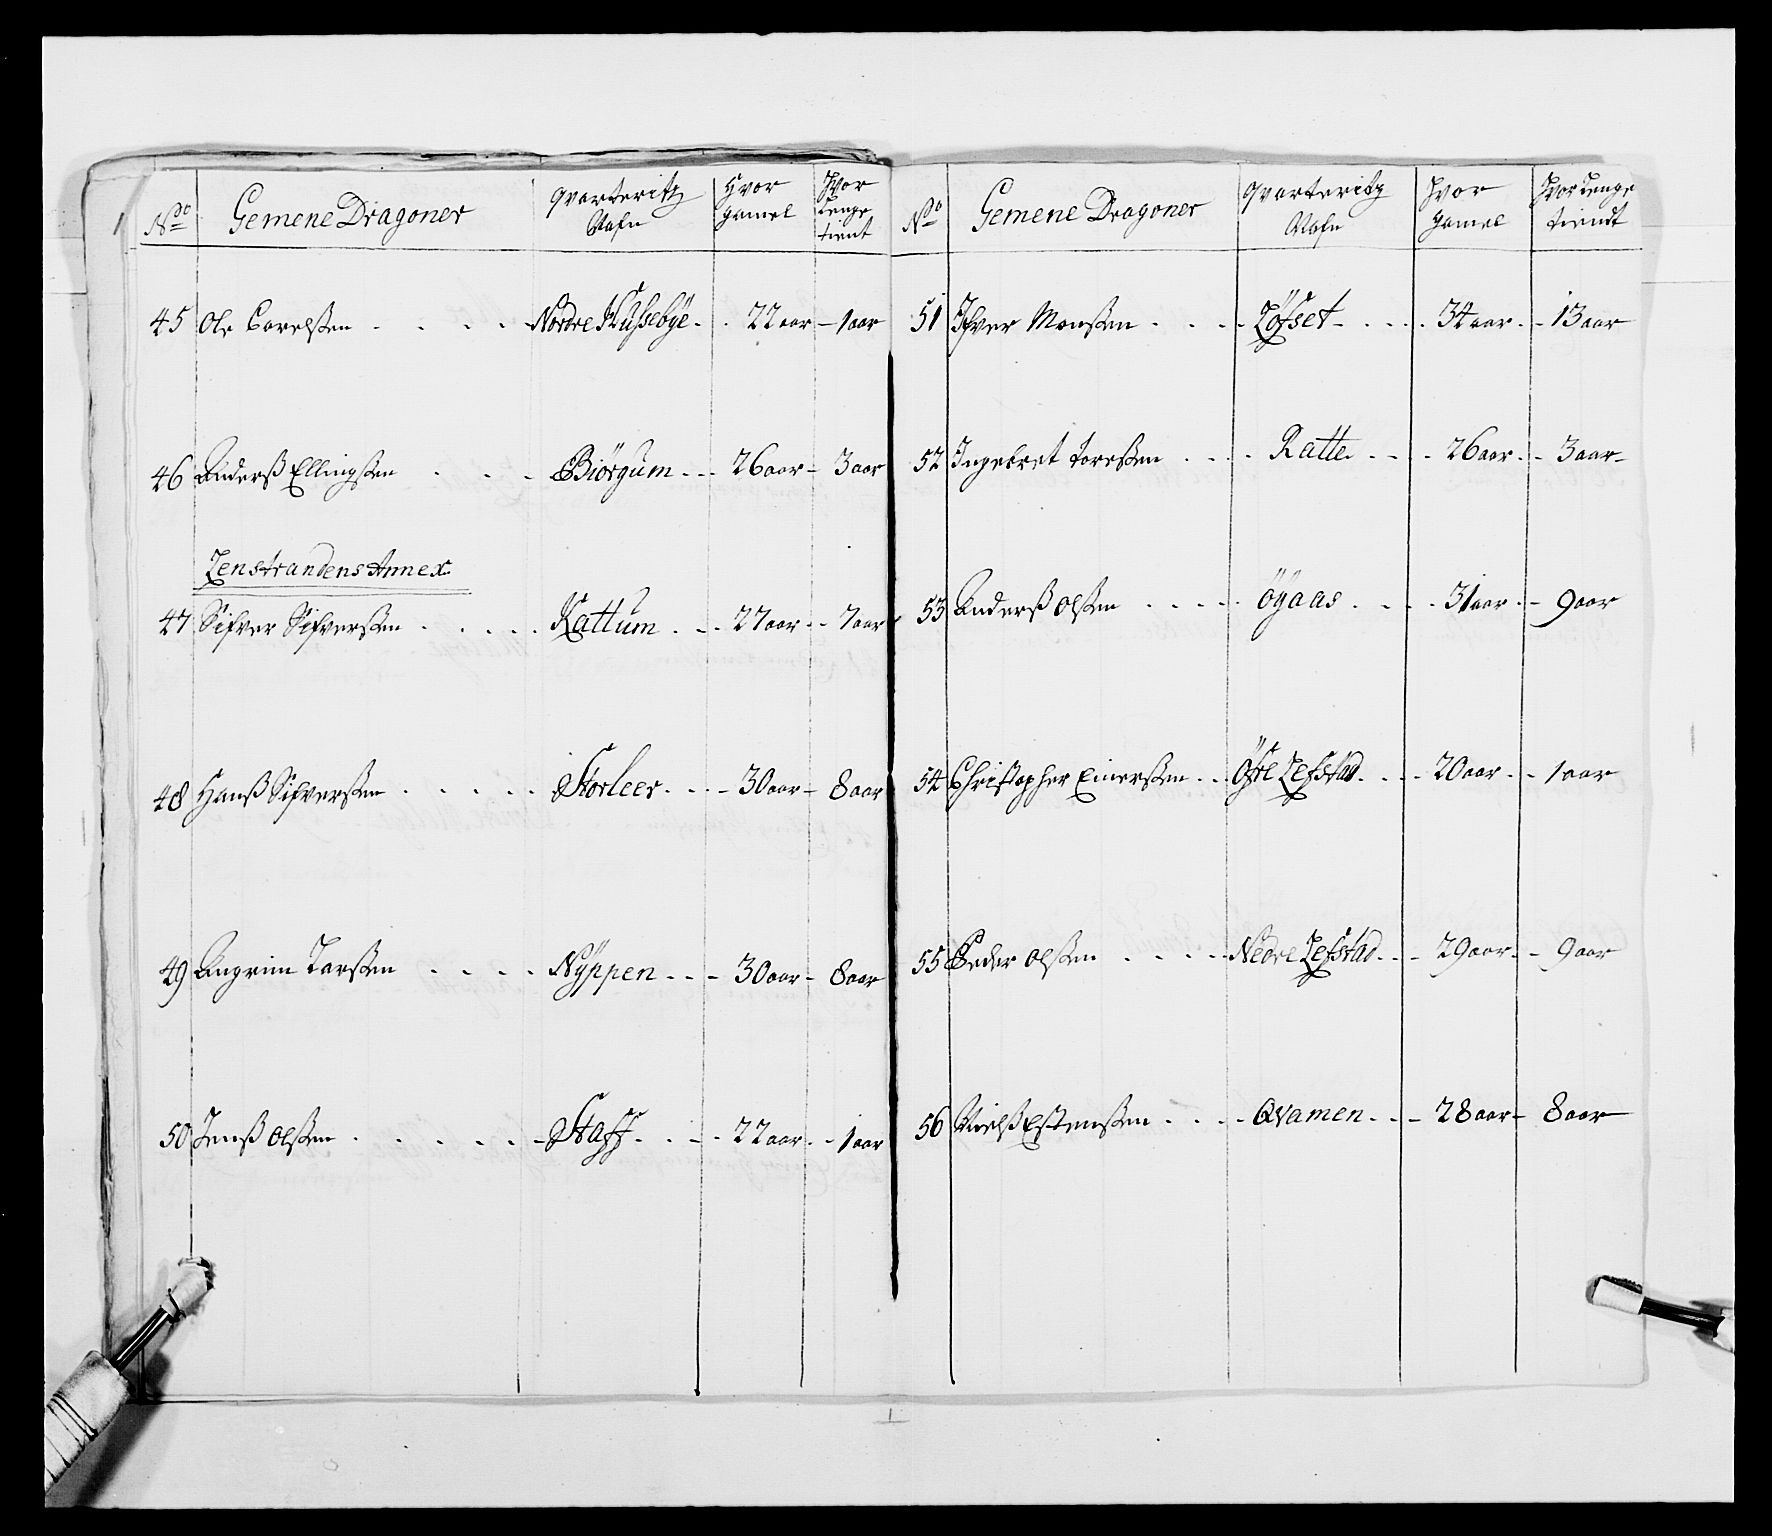 No Gemene Dragoner qvarteritz Nafn Hvor gamel Hvor Lenge tient
45 Ole Carelsßen Nordre Hussebÿe 22 aar 1 aar
46 Anderß Ellingsßen Biörgum 26 aar 3 aar
Lenstrandens Annex
47 Sifver Sifversßen Kattum 27 aar 7 aar
48 Hanß Sifversßen Storleer 30 aar 8 aar
49 Angrim Larsßen Nÿppen 30 aar 8 aar
50 Jenß Olsßen Staff 22 aar 1 aar
No Gemene Dragoner qvarteritz Nafn Hvor gamel Hvor Lenge tiendt
51 Ifver Monsßen Löfset 34 aar 13 aar
52 Ingebret Toresßen Ratte 26 aar 3 aar
53 Anderß Olsßen Öÿaas 31 aar 9 aar
54 Christopher Einersßen Öfre Lefstad 20 aar 1 aar
55 Peder Olsßen Nedre Lefstad 29 aar 9 aar
56 Nielß Estensßen Qvamen 28 aar 8 aar